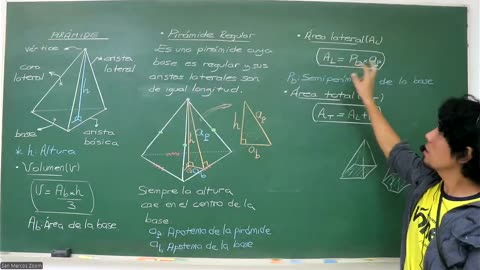 PIRÁMIDE
vértice
cara
lateral
arista
lateral
h
base
arista
básica
* h: Altura
• Volumen(V)
V = Ab×h
3
Ab: Área de la base
• Pirámide Regular
Es una pirámide cuya
base es regular y sus
aristas laterales son
de igual longitud.
h
ap
ab
h
ap
ab
Siempre la altura
cae en el centro de la
base
ap Apotema de la pirámide
ab Apotema de la base
• Área lateral(AL)
AL = Pb×ap
Pb: Semiperím de la base
• Área total(
AT = AL+
San Marcos Zoom